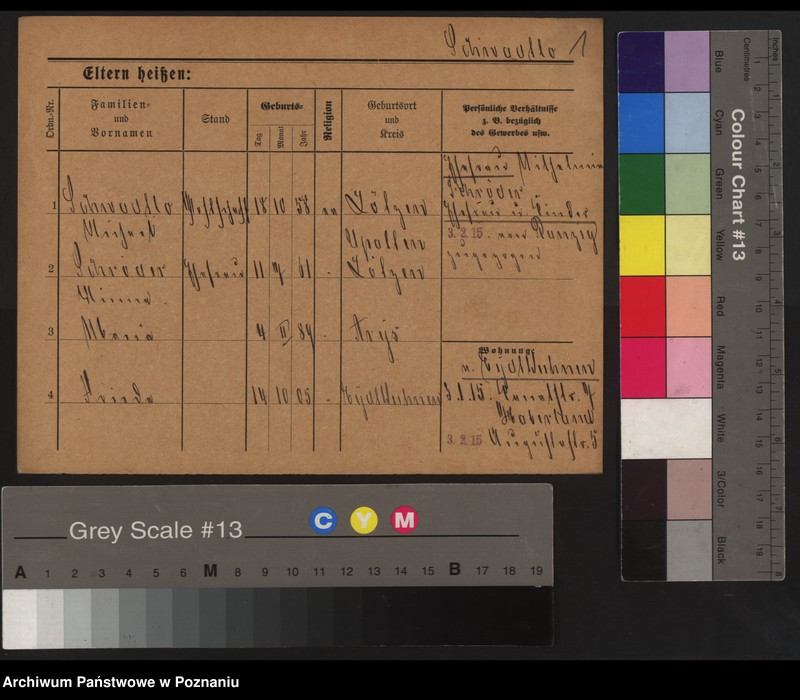 1
Eltern heißen:
Ordn.-Nr.
Familien- und Vornamen
Stand
Geburts-
Tag
Monat
Jahr
Religion
Geburtsort und Kreis
Persönliche Verhältnisse z. B. bezüglich des Gewerbes usw.
Ehefrau Wilhelmine
Schröder
1
18 10 58
Lötzen
Ehefrau u. Kinder
Michael
3.2.15. von Danzig
zugezogen
2
Schröder
Ehefrau
11
61
Lötzen
Minna
3
Maria
4 II 89
Arys
Wohnung:
n. Eydtkuhnen
4
Frieda
14 10 05
Eydtkuhnen
3.1.15.
Haberland
3.2.15 Augustastr. 5
Grey Scale #13
C Y M
A 1 2 3 4 5 6 M 8 9 10 11 12 13 14 15 B 17 18 19
Colour Chart #13
Blue
Cyan
Green
Yellow
Red
Magenta
White
3/Color
Black
Centimetres
Inches
Archiwum Państwowe w Poznaniu